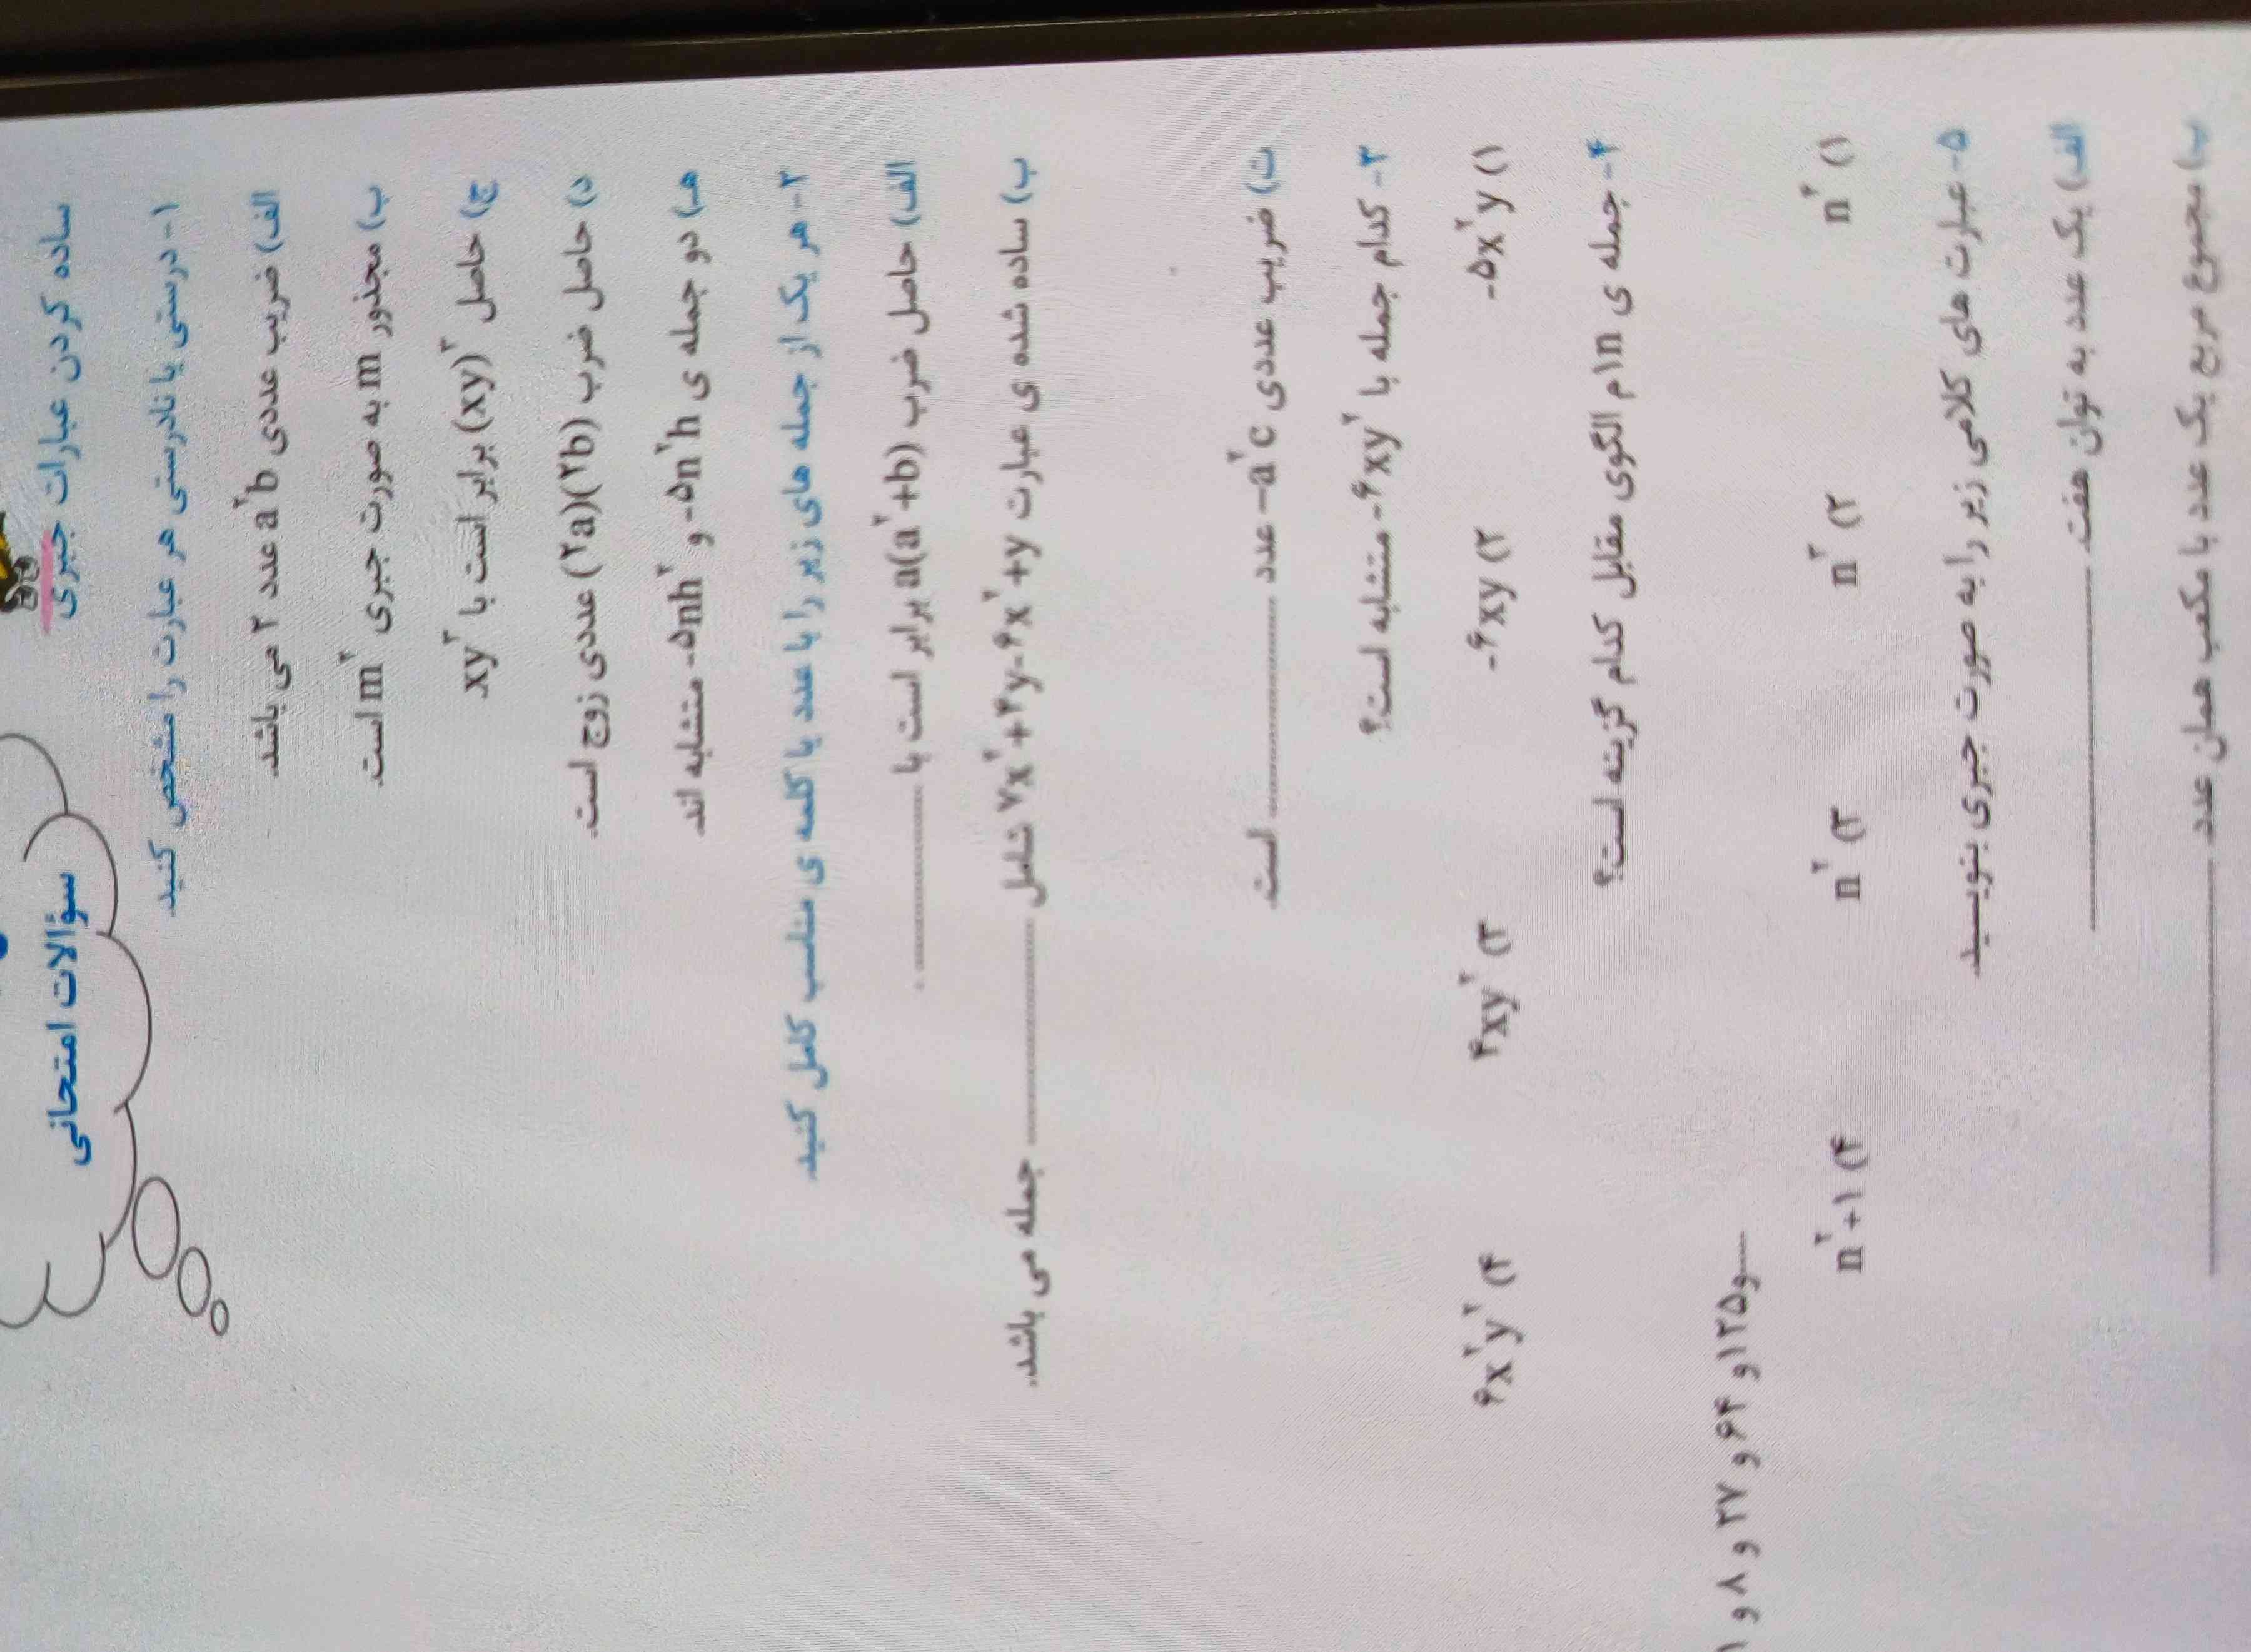 سؤالات امتحانی
ساده کردن عبارات جبری
۱- درستی یا نادرستی هر عبارت را مشخص کنید.
الف) ضریب عددی a²b عدد ۲ می باشد.
ب) مجذور m به صورت جبری m² است.
ج) حاصل (xy)² برابر است با xy²
د) حاصل ضرب (۲a)(۲b) عددی زوج است.
هـ) دو جمله ی -۵n²h و -۵nh² متشابه اند.
۲- هر یک از جمله های زیر را با عدد یا کلمه ی مناسب کامل کنید.
الف) حاصل ضرب a(a²+b) برابر است با .................... .
ب) ساده شده ی عبارت ۷x²+۴y-۶x²+y شامل .................... جمله می باشد.
ت) ضریب عددی -a²c عدد .................... است.
۳- کدام جمله با -۶xy² متشابه است؟
۱) -۵x²y
۲) -۶xy
۳) ۴xy²
۴) ۶x²y²
۴- جمله ی nام الگوی مقابل کدام گزینه است؟
۱ و ۸ و ۲۷ و ۶۴ و ۱۲۵و....
۱) n⁴
۲) n³
۳) n²
۴) n²+۱
۵- عبارت های کلامی زیر را به صورت جبری بنویسید.
الف) یک عدد به توان هفت ....................
ب) مجموع مربع یک عدد با مکعب همان عدد ....................